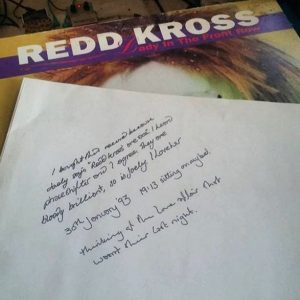 REDD KROSS
Lady In The Front Row
I bought this record because
Joely says "Redd Kross are one I heard
and I agree. They are
bloody brilliant, so is Joely. I love her
30th January '93 19:13 sitting on my bed.
thinking of the love affair that
wasn't their last night.